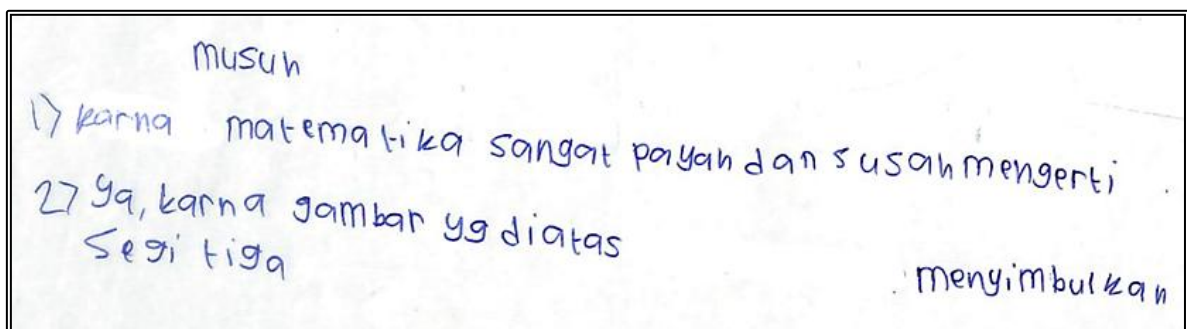 musuh
1) karna matematika sangat payah dan susah mengerti.
2) Ya, karna gambar yg diatas menyimbulkan
segi tiga